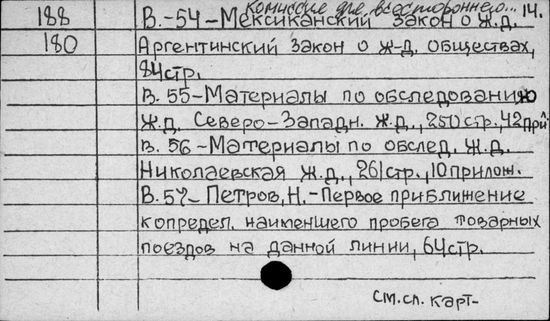 Комиссия для всестороннего... 14.
188 В.-54-Мексиканский закон о ж.д.
180 Аргентинский закон о ж-д. обществах,
84стр.
В. 55-Материалы по обследованию
ж.д. Северо-Западн. ж.д., 250стр., 42прил.
В. 56-Материалы по обслед. ж.д.
Николаевская ж.д., 261стр., 10прилож.
В.57- Петров, Н.-Первое приближение
к определ. наименшего пробега товарных
поездов на данной линии, 64стр.
см.сл. карт-